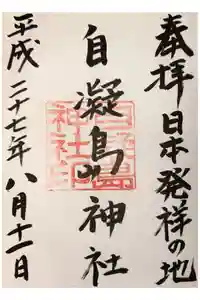 奉拝 日本発祥の地
自凝島神社
平成二十七年八月十一日